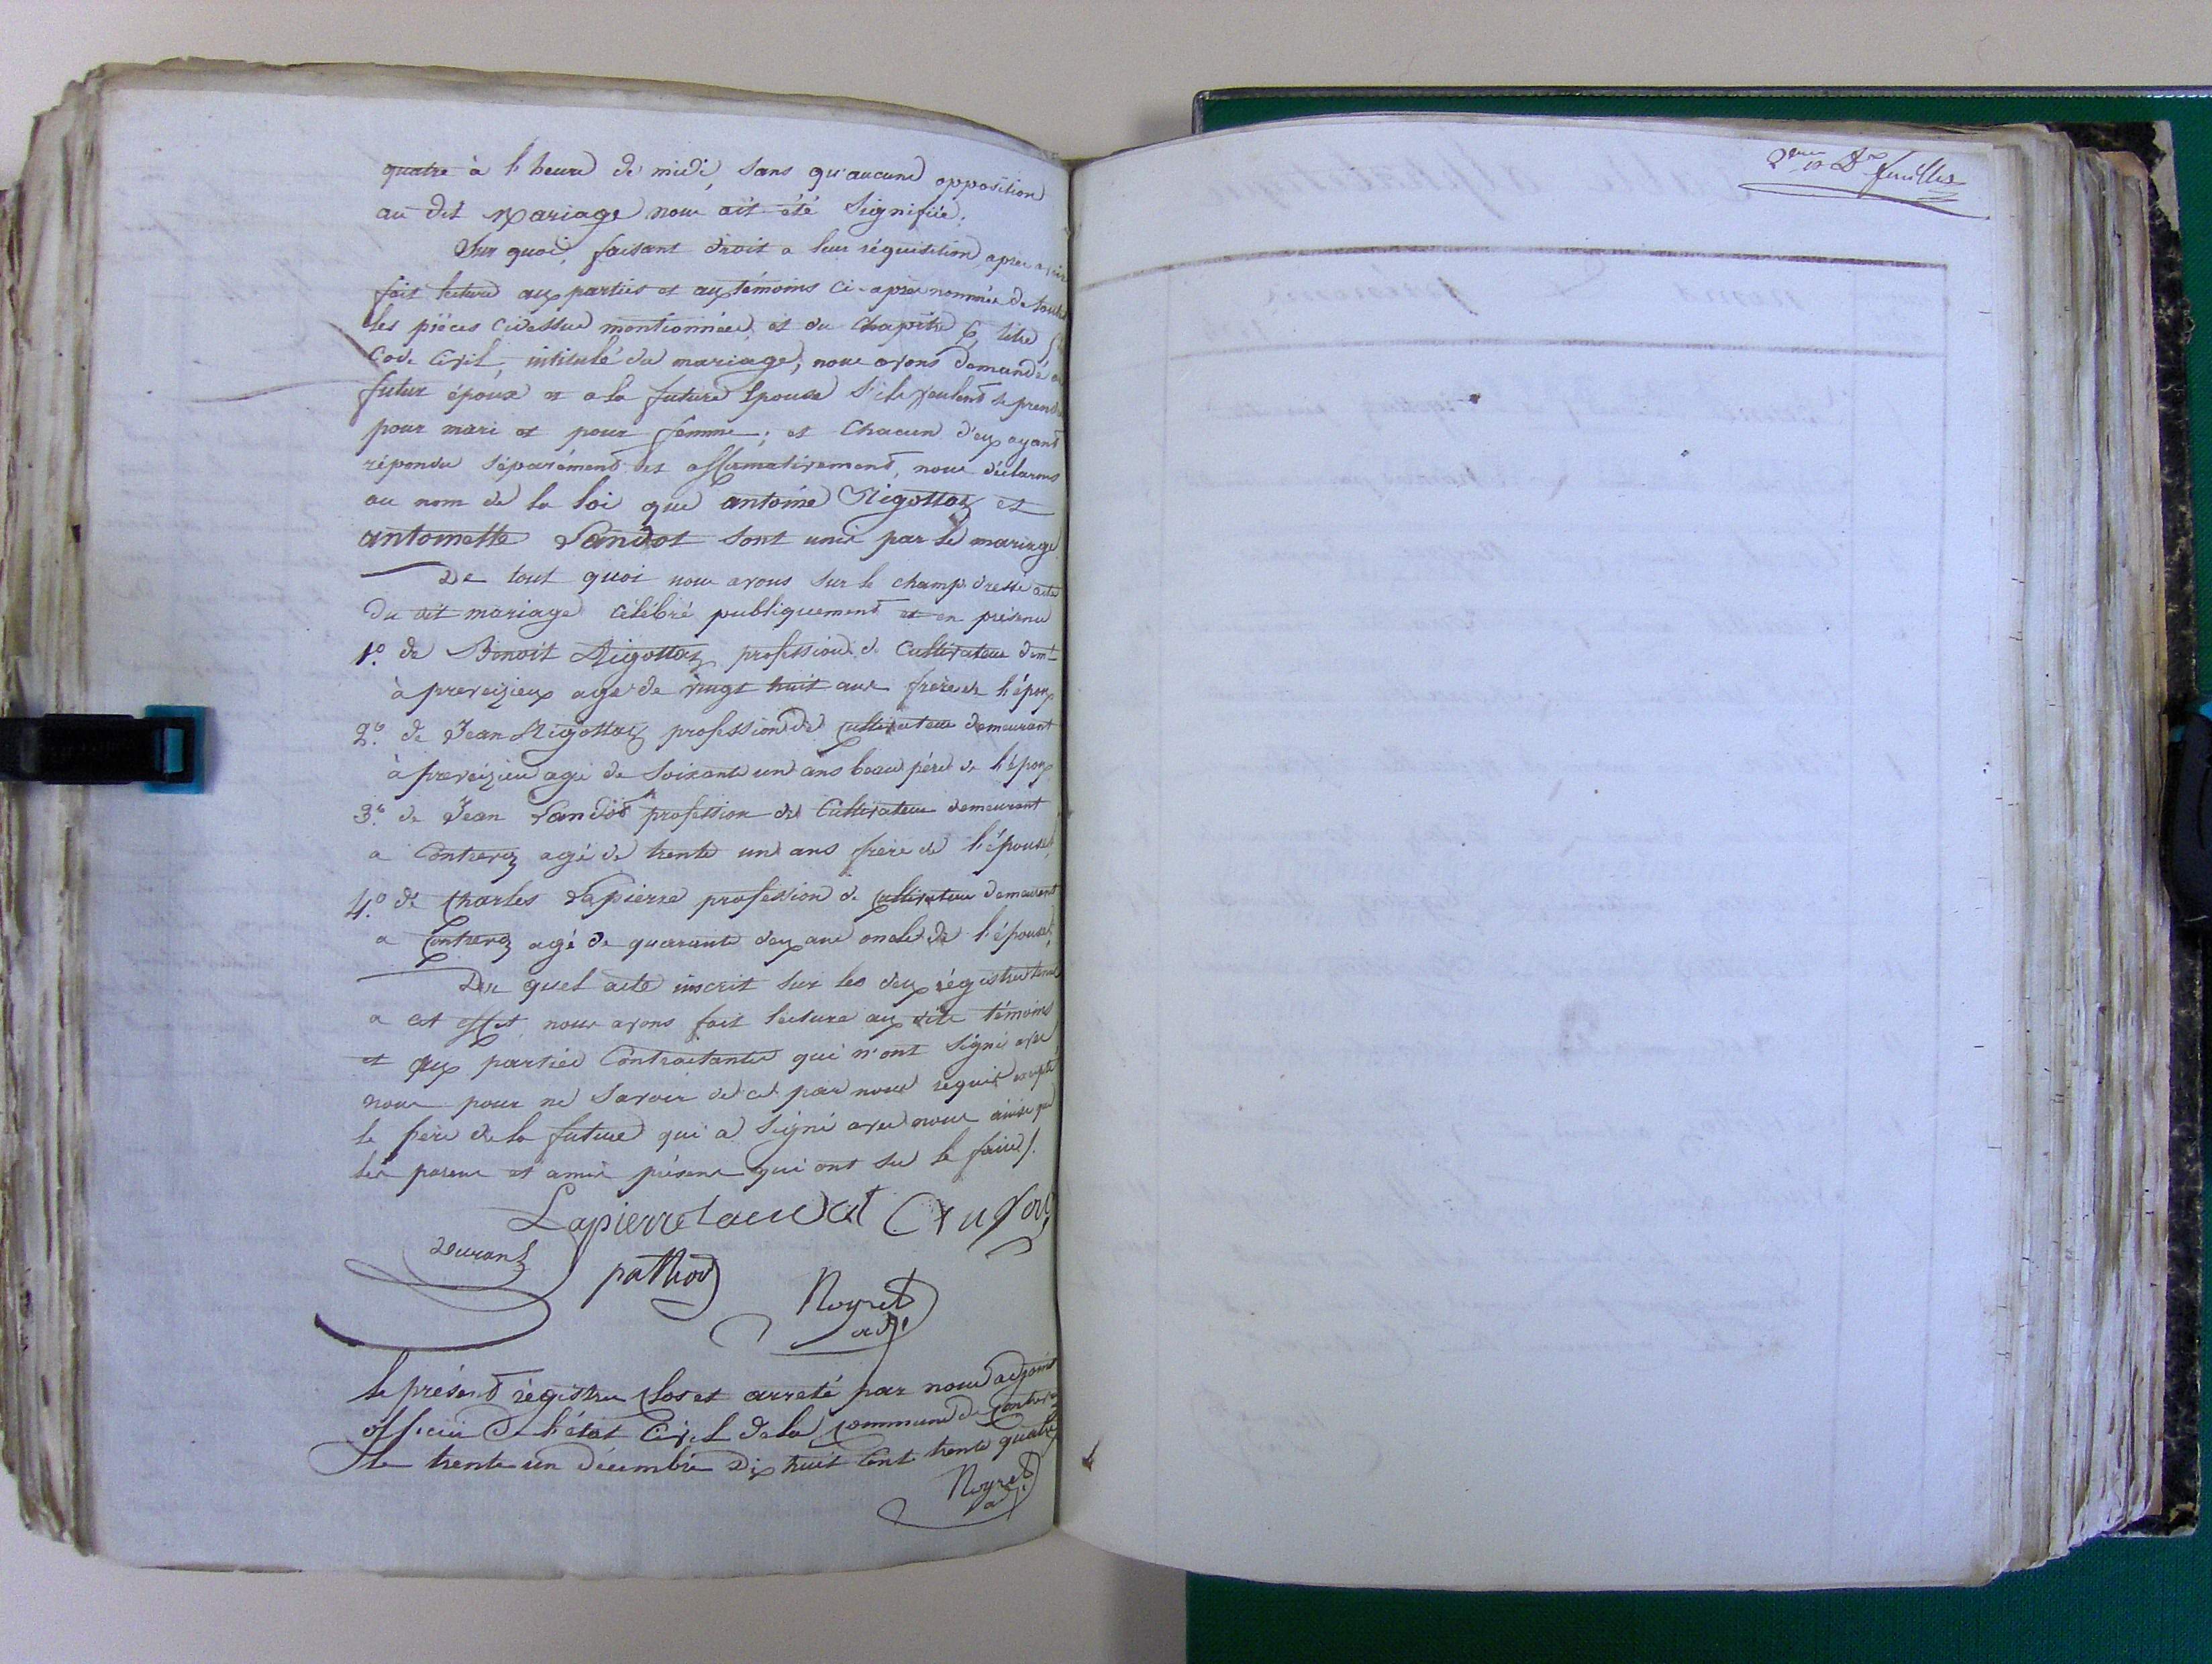 quatre à l'heure de midi, sans qu'aucune opposition
au dit mariage nous ait été signifiée.
Sur quoi, faisant droit a leur réquisition, apres avoir
fait lecture aux parties et aux témoins ci-apres nommés de toutes
les pièces cidessus mentionnées, et du chapitre 6, titre
Code Civil, intitulé du mariage; nous avons demandé au
futur époux et a la future épouse s'ils veulent se prendre
pour mari et pour femme; et chacun d'eux ayant
répondu séparément et affirmativement, nous déclarons
au nom de la loi que antoine Rigottaz et
antoinette Landot sont unis par le mariage
De tout quoi nous avons sur le champ dressé acte
du dit mariage célébré publiquement et en présence
1.º de Benoit Rigottaz profession de Cultivateur demt
à preveizieux agé de vingt huit ans frere de l'époux
2.º de Jean Rigottaz profession de cultivateur demeurant
à preveizieu agé de soixante un ans beau père de l'époux
3.º de Jean Landot profession de Cultivateur demeurant
a Contrevoz agé de trente un ans frere de l'épouse
4.º de Charles Lapierre profession de Cultivateur demeurant
a Contrevoz agé de quarante deux ans oncle de l'épouse
Du quel acte inscrit sur les deux régistres tenus
a cet effet, nous avons fait lecture aux dits témoins
et aux parties Contractantes qui n'ont signé avec
nous pour ne savoir de ce par nous requis excepté
le père de la future qui a signé avec nous ainsi que
les parens et amis présens qui ont su le faire/.
Lapierre Laudat
Durand pathod Noyret
adj.
le présent régistre Clos et arreté par nous adjoint
officier de l'état Civil de la Commune de Contrevoz
le trente un décembre dix huit cent trente quatre
Noyret
ad
2eme et Dr feuillet